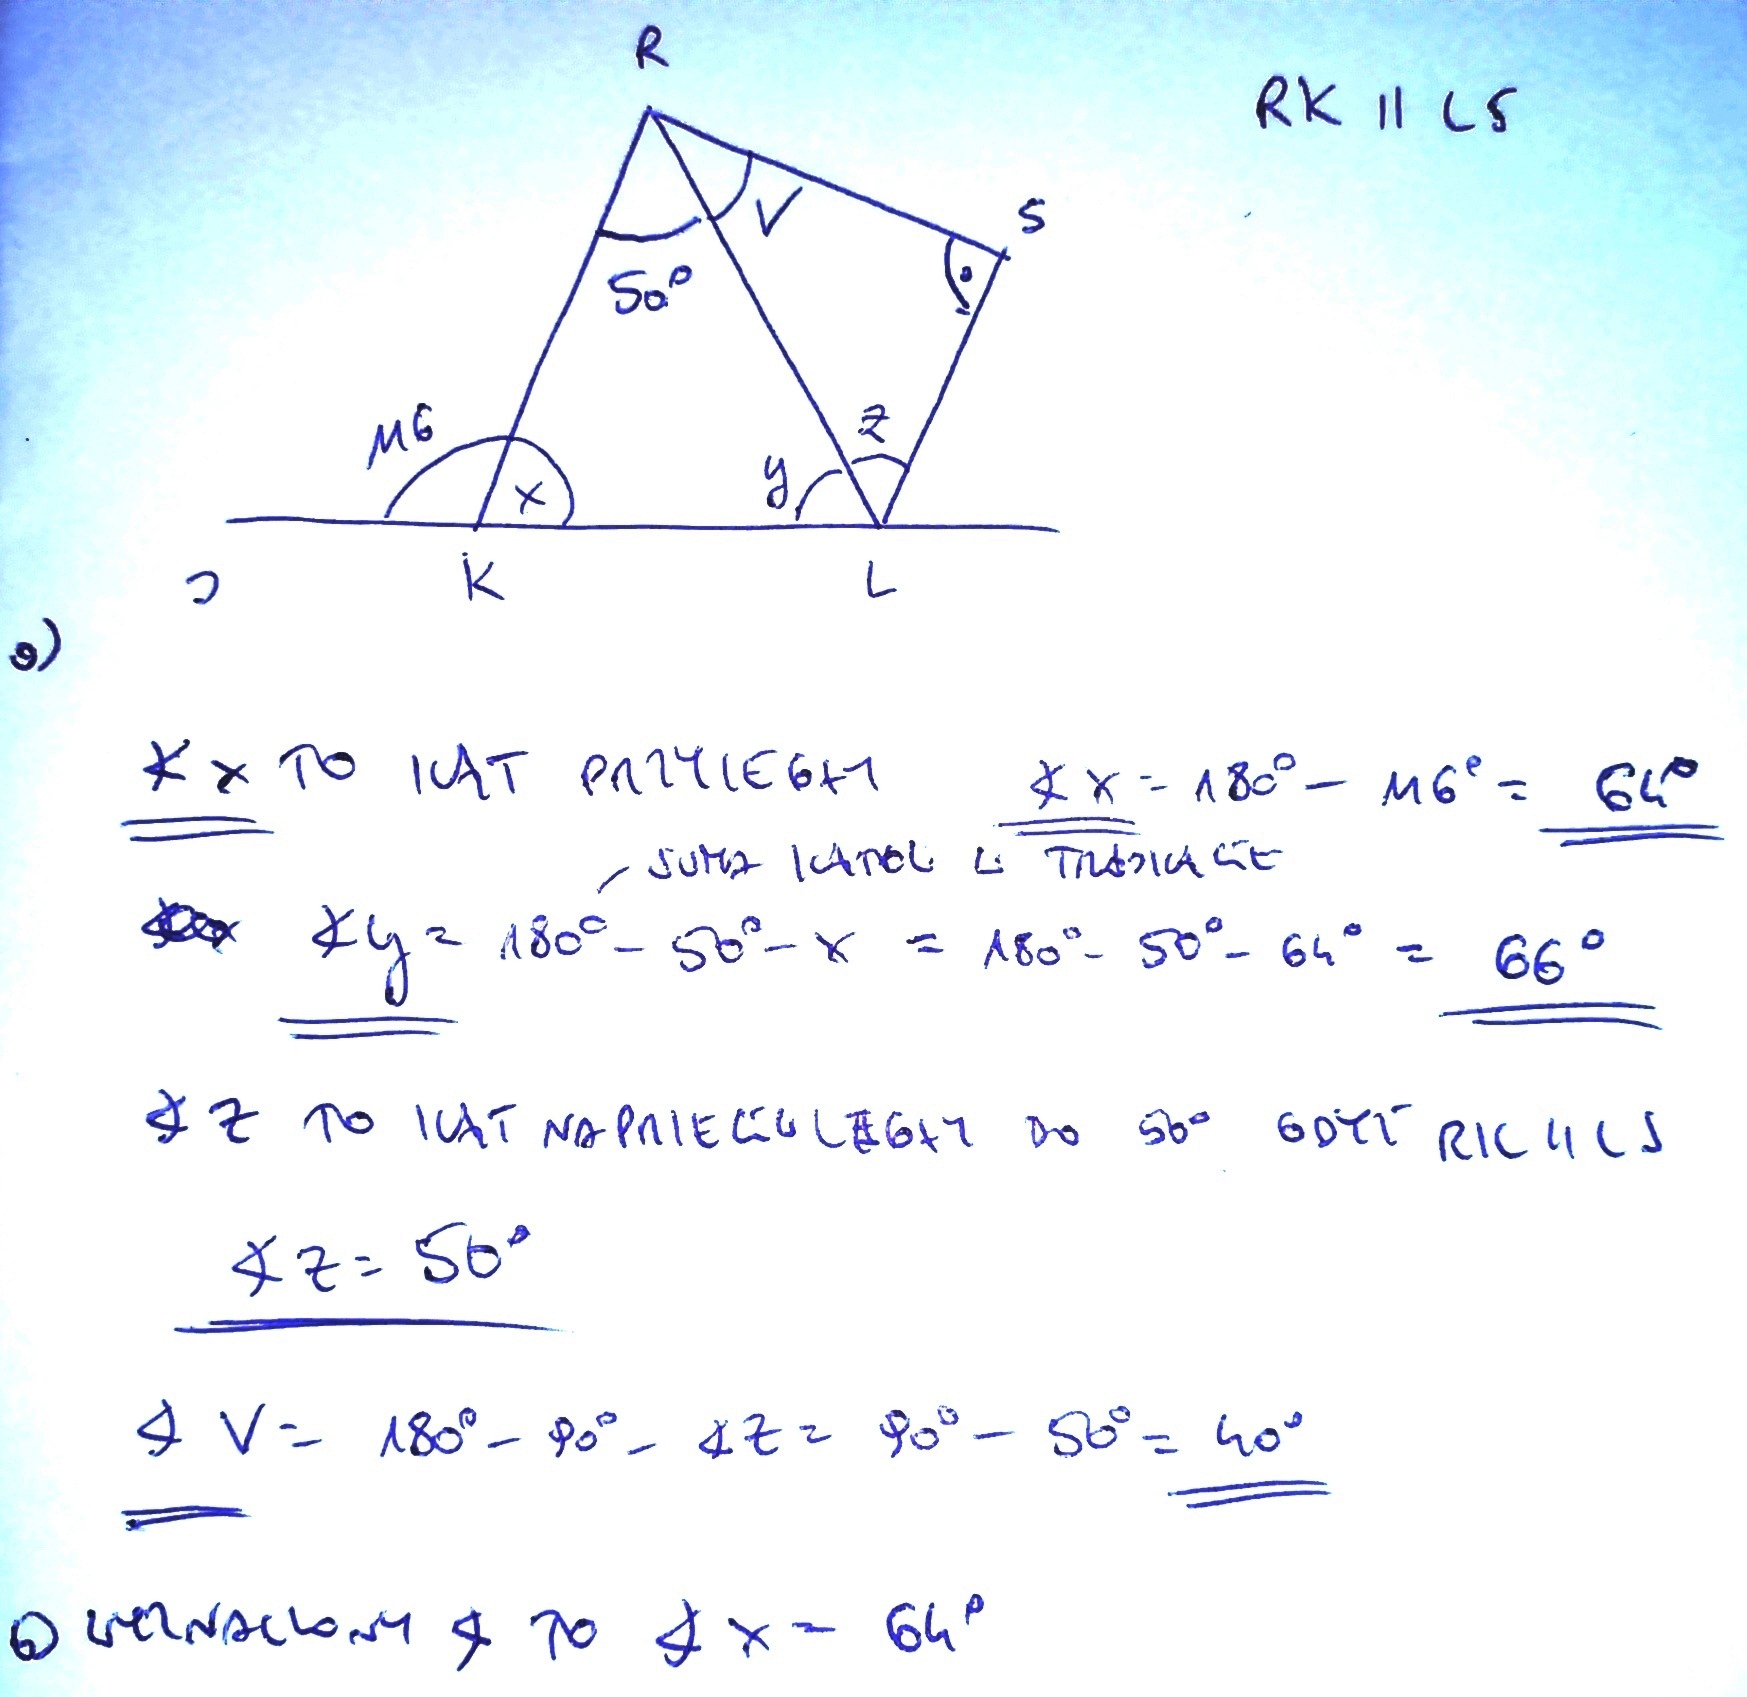 R
RK || LS
S
V
50°
116
z
y
x
K
L
a)
∢x TO KĄT PRZYLEGŁY ∢x = 180° - 116° = 64°
SUMA KĄTÓW W TRÓJKĄCIE
∢y = 180° - 50° - x = 180° - 50° - 64° = 66°
∢z TO KĄT NAPRZECIWLEGŁY DO 50° GDYŻ RK || LS
∢z = 50°
∢V = 180° - 90° - ∢z = 90° - 50° = 40°
b) WYZNACZONY ∢ TO ∢x = 64°